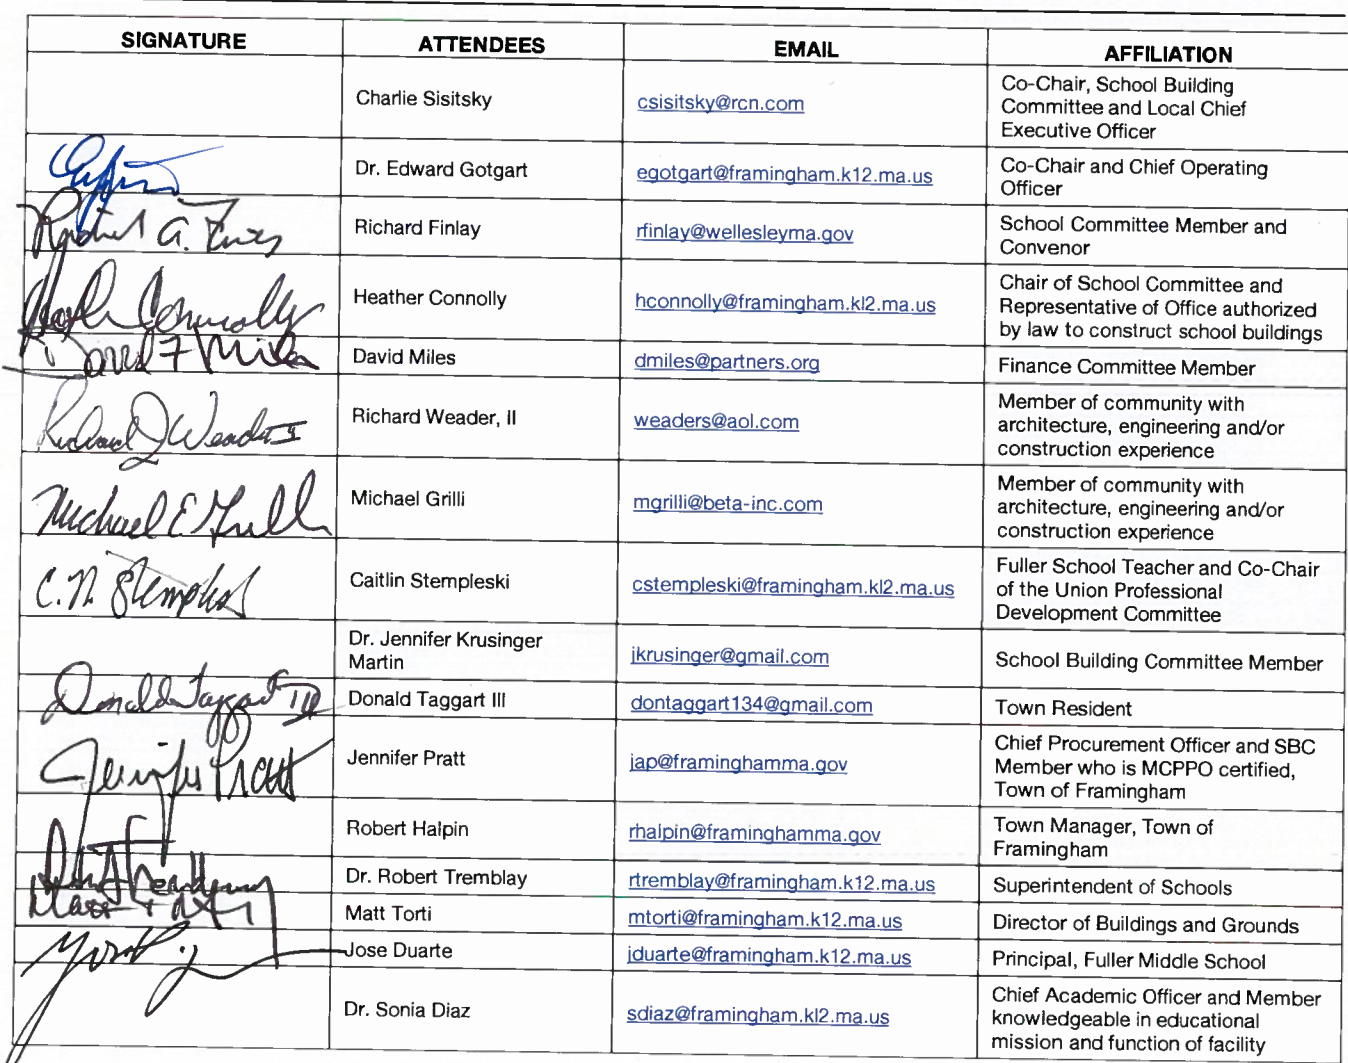 SIGNATURE ATTENDEES EMAIL AFFILIATION
Charlie Sisitsky csisitsky@rcn.com Co-Chair, School Building
Committee and Local Chief
Executive Officer
Dr. Edward Gotgart egotgart@framingham.k12.ma.us Co-Chair and Chief Operating
Officer
Richard Finlay rfinlay@wellesleyma.gov School Committee Member and
Convenor
Heather Connolly hconnolly@framingham.kl2.ma.us Chair of School Committee and
Representative of Office authorized
by law to construct school buildings
David F Miles David Miles dmiles@partners.org Finance Committee Member
Richard J Weader II Richard Weader, II weaders@aol.com Member of community with
architecture, engineering and/or
construction experience
Michael E Grilli Michael Grilli mgrilli@beta-inc.com Member of community with
architecture, engineering and/or
construction experience
C. N. Stempleski Caitlin Stempleski cstempleski@framingham.kl2.ma.us Fuller School Teacher and Co-Chair
of the Union Professional
Development Committee
Dr. Jennifer Krusinger
Martin jkrusinger@gmail.com School Building Committee Member
Donald Taggart III Donald Taggart III dontaggart134@gmail.com Town Resident
Jennifer Pratt Jennifer Pratt jap@framinghamma.gov Chief Procurement Officer and SBC
Member who is MCPPO certified,
Town of Framingham
Robert Halpin rhalpin@framinghamma.gov Town Manager, Town of
Framingham
Dr. Robert Tremblay rtremblay@framingham.k12.ma.us Superintendent of Schools
Matt Torti mtorti@framingham.k12.ma.us Director of Buildings and Grounds
Jose Duarte jduarte@framingham.k12.ma.us Principal, Fuller Middle School
Dr. Sonia Diaz sdiaz@framingham.kl2.ma.us Chief Academic Officer and Member
knowledgeable in educational
mission and function of facility